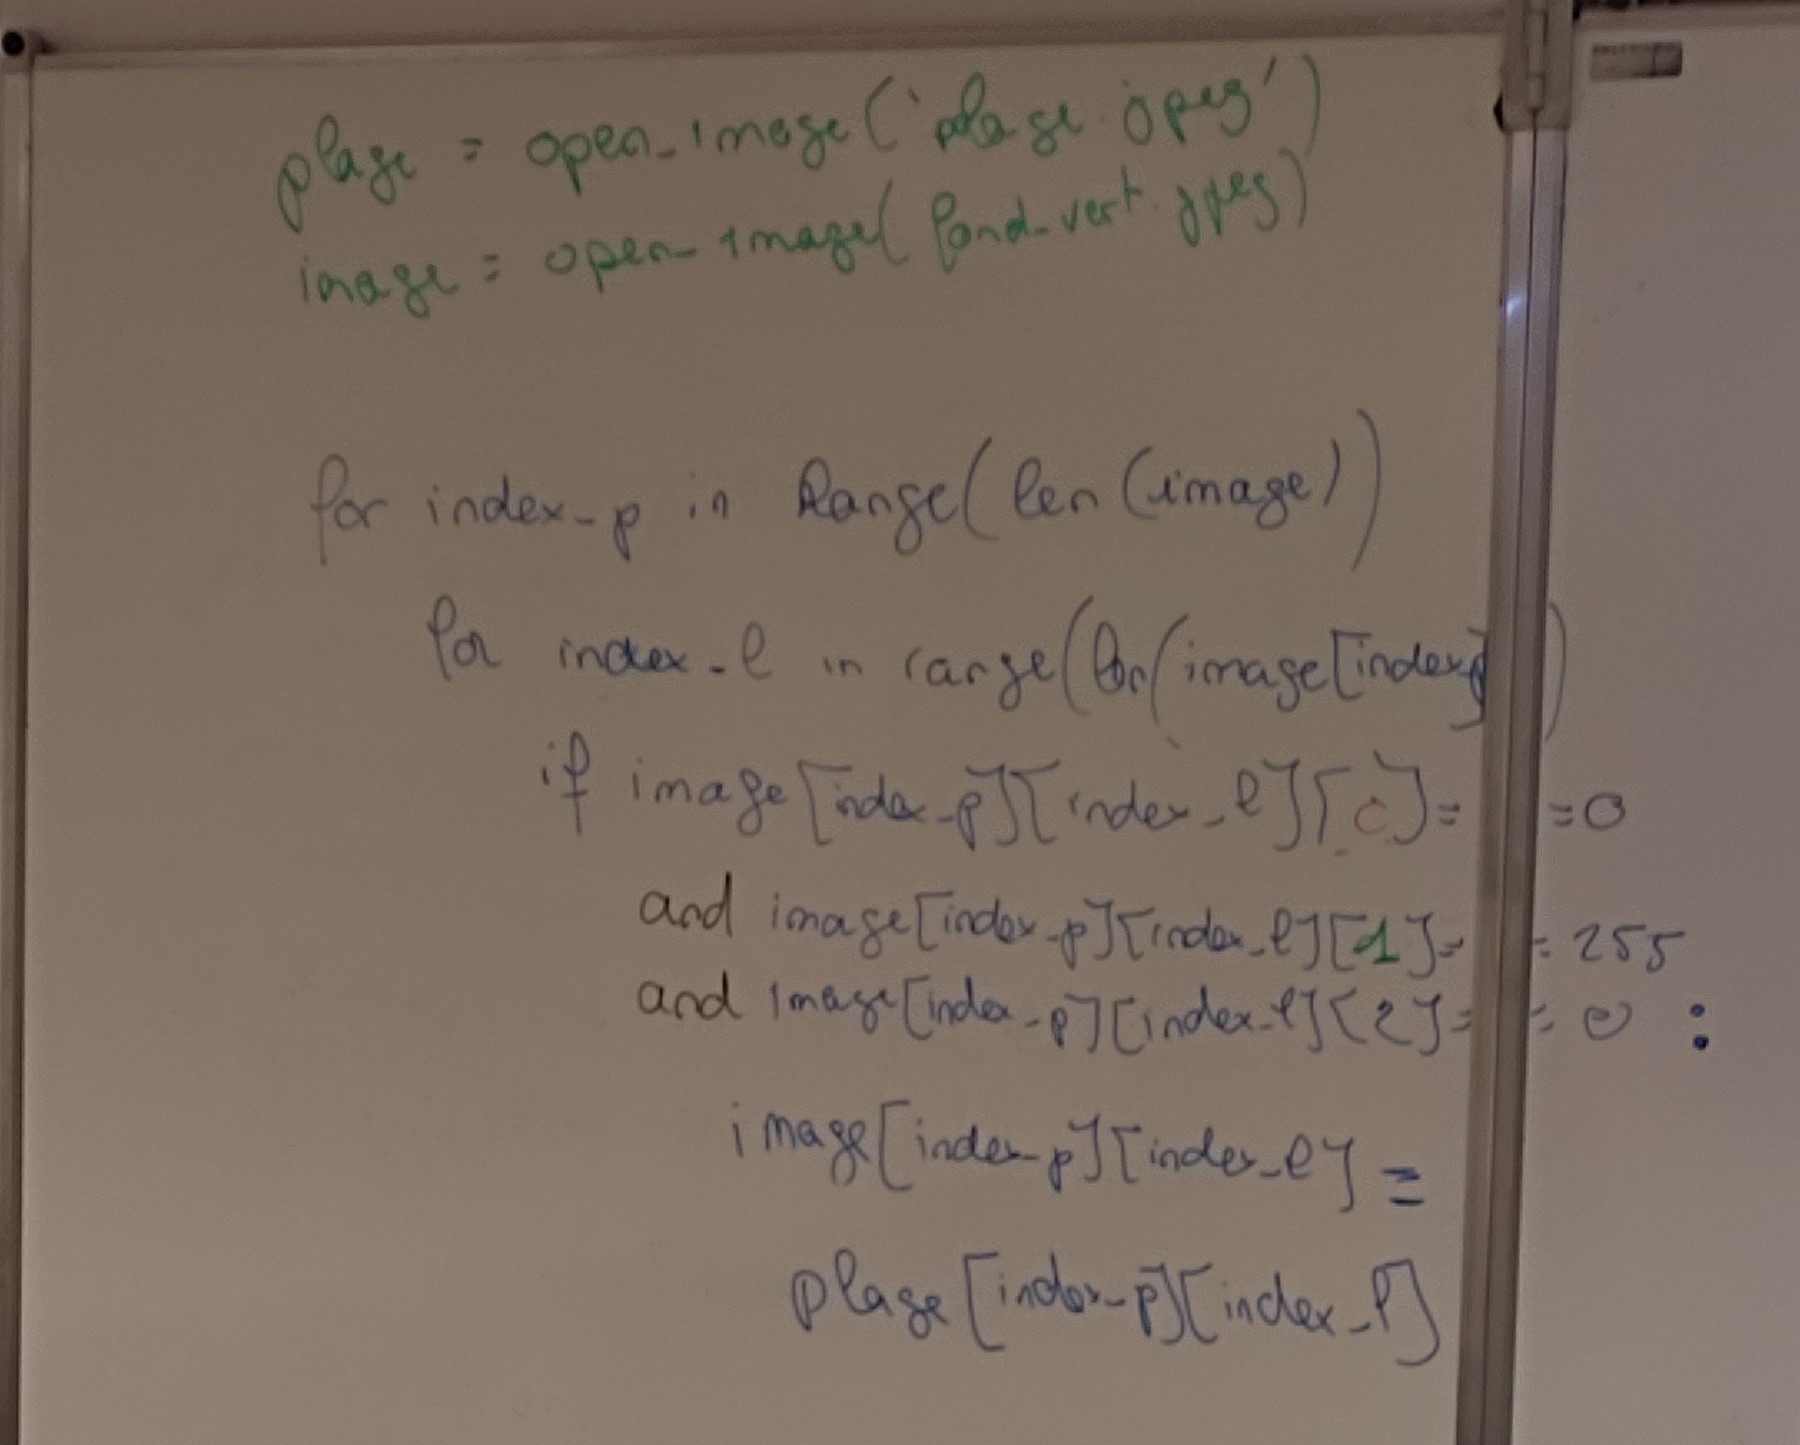 plage = open_image('plage.jpeg')
image = open_image(fond_vert.jpeg)
for index_p in Range(len(image))
for index_l in range(len(image[index_p])
if image[index_p][index_l][0]==0
and image[index_p][index_l][1]==255
and image[index_p][index_l][2]==0 :
image[index_p][index_l] =
plage[index_p][index_l]